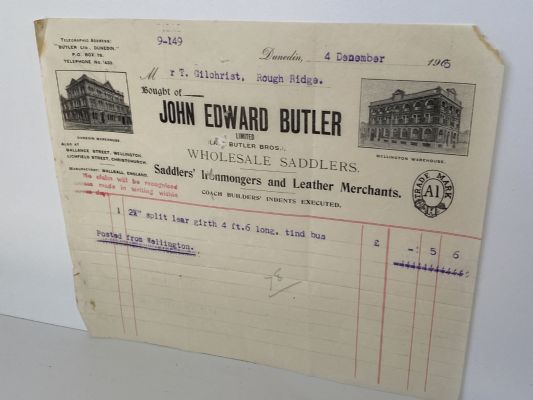 TELEGRAPHIC ADDRESS:
"BUTLER LTD., DUNEDIN."
P.O. BOX 75.
TELEPHONE No. 1435.
9-149
Dunedin, 4 Desember 1905
M r T. Gilchrist, Rough Ridge.
Bought of
JOHN EDWARD BUTLER
LIMITED
BUTLER BROS.).
WHOLESALE SADDLERS.
Saddlers' Ironmongers and Leather Merchants.
COACH BUILDERS' INDENTS EXECUTED.
DUNEDIN WAREHOUSE.
ALSO AT
BALLANCE STREET, WELLINGTON.
LICHFIELD STREET, CHRISTCHURCH.
MANUFACTORY: WALSALL, ENGLAND.
No claim will be recognised
unless made in writing within
seven days
WELLINGTON WAREHOUSE.
TRADE MARK
A1
1 2¼" split lear girth 4 ft.6 long. tind bus £ - 5 6
Posted from Wellington.